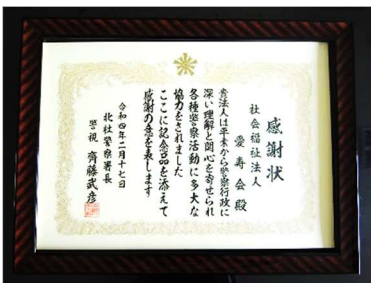 感謝状
社会福祉法人
愛寿会殿
貴法人は平素から警察行政に
深い理解と関心を寄せられ
各種警察活動に多大な
協力をされました
ここに記念品を添えて
感謝の意を表します
令和四年二月十七日
北杜警察署長
警視 齊藤武彦